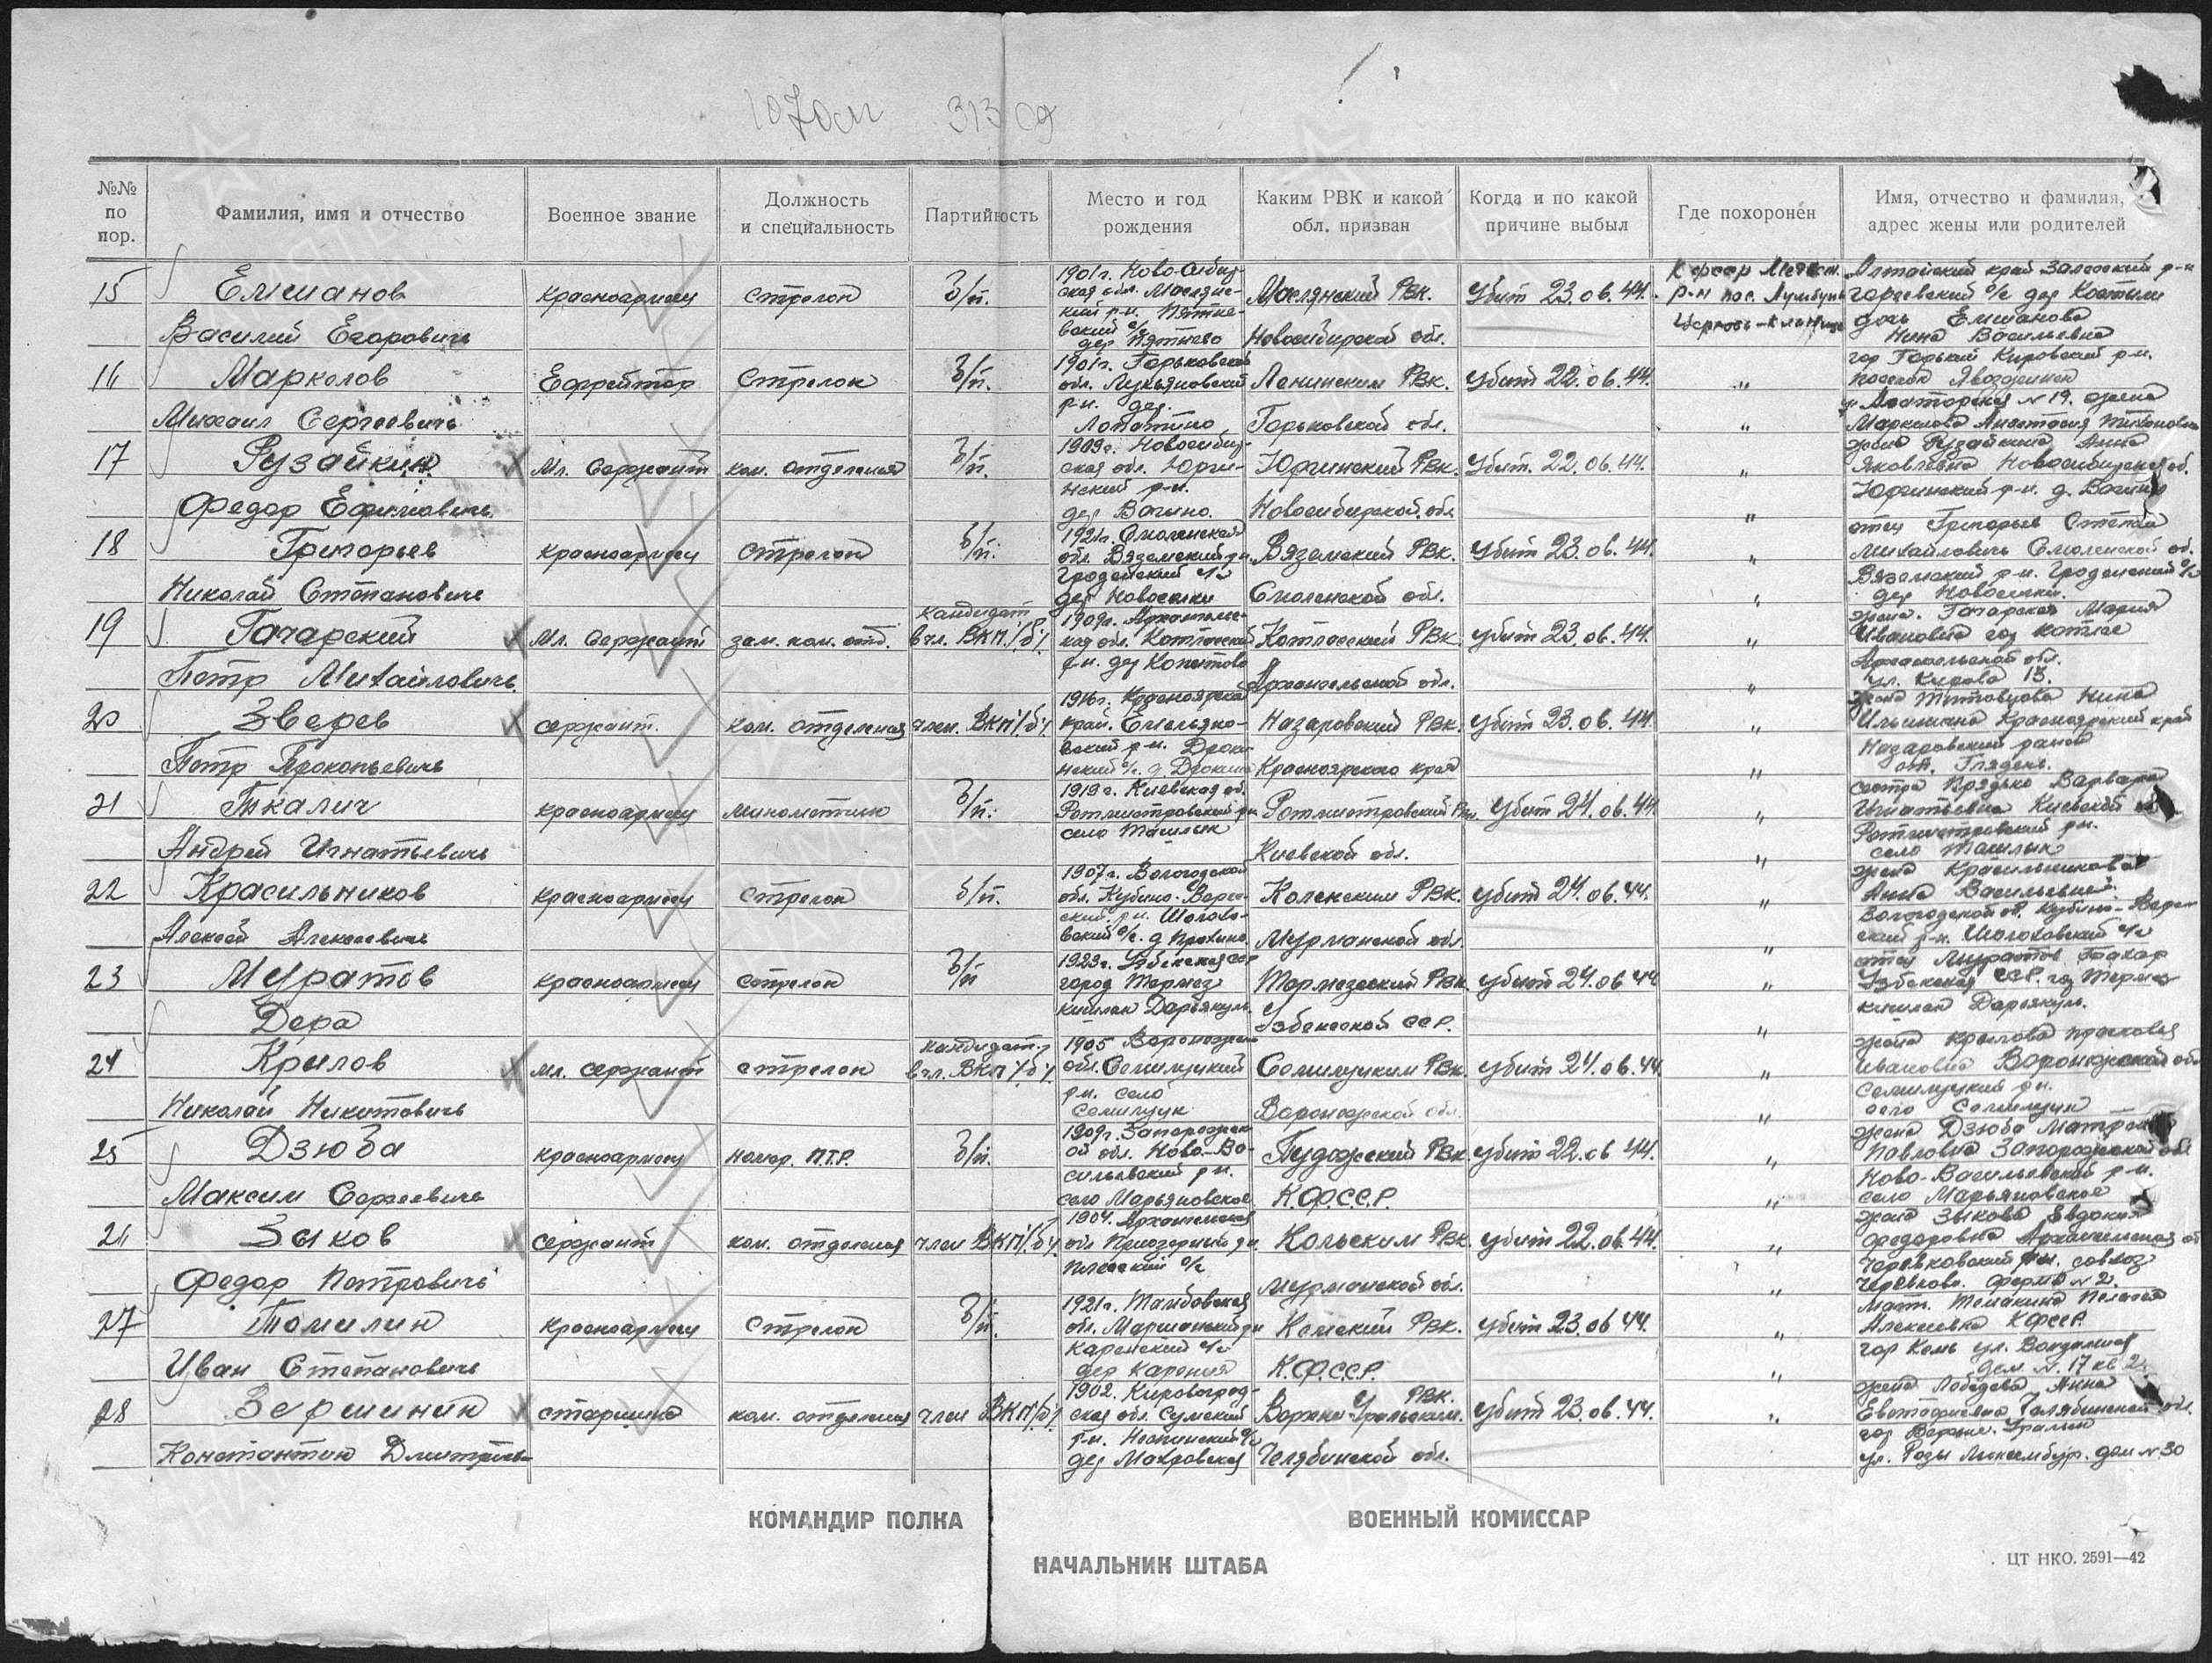 1070сп 313 сд
№№ по пор.
Фамилия, имя и отчество
Военное звание
Должность и специальность
Партийность
Место и год рождения
Каким РВК и какой обл. призван
Когда и по какой причине выбыл
Где похоронен
Имя, отчество и фамилия, адрес жены или родителей
15 Емшанов Василий Егорович
красноармеец стрелок б/п.
1901г. Ново-Сибир-
ская обл. Маслянс-
кий р-н. Пятнев-
ский с/с
дер Пятнево
Маслянский РВК.
Новосибирской обл.
Убит 23.06.44.
К фсср Медвеж.
р-н пос. Лумбуши
Церковь-кладбище
Алтайский край Залесовский р-н
с/с дер Костыли
дочь Емшанова
Нина Васильевна
16 Маркелов Михаил Сергеевич
Ефрейтор Стрелок б/п.
1901г. Горьковская
обл. Лукьяновский
р-н. дер.
Лопатино
Ленинским РВК.
Горьковской обл.
Убит 22.06.44.
"
гор Горький Кировский р-н.
поселок
№ 19. жена
Маркелова Анастасия Тихоновна
17 Рузайкин Федор Ефимович
Мл. Сержант ком. отделения б/п.
1909г. Новосибир-
ская обл. Юрги-
нский р-н.
дер Вагино.
Юргинский РВК.
Новосибирской обл
Убит. 22.06.44.
"
жена Рузайкина Анна
Яковлевна Новосибирская об.
Юргинский р-н. д. Вагино
18 Григорьев Николай Степанович
красноармеец стрелок б/п.
1921г. Смоленская
обл. Вяземский р-н
с/с
дер Новоселки
Вяземский РВК.
Смоленской обл.
Убит 23.06.44.
"
отец Григорьев Степан
Михайлович Смоленской об.
Вяземский р-н. с/с
дер Новоселки.
19 Гагарский Петр Михайлович
Мл. Сержант зам. ком. отд.
кандидат
в чл. ВКП/б/
1909г. Архангельс-
кая обл. Котласский
р-н. дер Копытово
Котласский РВК.
Архангельской обл.
убит 23.06.44.
"
жена. Гагарская Мария
Ивановна гор Котлас
Архангельской обл.
ул. Кирова 13.
20 Зверев Петр Прокопьевич
сержант. ком. отделения член. ВКП/б/
1916г. Красноярский
край. Емельяно-
вский р-н. Дроки-
нский с/с. д. Дрокино
Назаровский РВК.
Красноярского края
убит 23.06.44.
"
жена Титовцова Нина
Ильинична Красноярский край
Назаровский район
ст. Глядень.
21 Ткалич Андрей Игнатьевич
красноармеец минометчик б/п.
1919г. Киевская об.
Ротмистровский р-н
село Ташлык
Ротмистровский РВК.
Киевской обл.
Убит 24.06.44.
"
сестра Прядько Варвара
Игнатьевна Киевской об
Ротмистровский р-н.
село Ташлык
22 Красильников Алексей Алексеевич
красноармеец стрелок б/п.
1907г. Вологодской
обл. Кубино-Озерс-
кий р-н.
с/с. д
Кольским РВК.
Мурманской обл.
убит 24.06.44.
"
жена Красильникова
Анна Васильевна
Вологодской об.
23 Муратов Дера
красноармеец стрелок б/п
1923г. Узбекская ССР
город Термез
кишлак Дарьякуль.
Термезский РВК
Узбекской ССР.
убит 24.06.44
"
отец Муратов
Узбекская ССР. гор Термез
кишлак Дарьякуль.
24 Крылов Николай Никитович
мл. сержант стрелок
кандидат
в чл. ВКП/б/
1905 Воронежская
обл. Семилукский
р-н. село
Семилуки
Семилукским РВК.
Воронежской обл.
убит 24.06.44
"
жена Крылова Прасковья
Ивановна Воронежской обл
Семилукский р-н.
село Семилуки
25 Дзюба Максим Сергеевич
красноармеец номер. ПТР. б/п.
1909г. Запорожск-
ой обл. Ново-Ва-
сильевский р-н.
село Марьяновское
Пудожский РВК
К.Ф.С.С.Р.
убит 22.06.44.
"
жена Дзюба Матрена
Павловна Запорожской обл
Ново-Васильевский р-н.
село Марьяновское
26 Зыков Федор Петрович
сержант ком. отделения член ВКП/б/
1904. Архангельская
обл Приозерный р-н.
с/с
Кольским РВК
Мурманской обл.
убит 22.06.44.
"
жена Зыкова Евдокия
Федоровна Архангельская об
Черевковский р-н. совхоз
Черевково. ферма № 2.
27 Томилин Иван Степанович
красноармеец Стрелок б/п.
1921г. Тамбовская
обл. Моршанский р-н
с/с
дер
Кемский РВК.
К.Ф.С.С.Р.
убит 23.06.44.
"
мать. Пелагея
Алексеевна КФССР.
гор Кемь ул.
дом. № 17 кв 2.
28 Зершинин Константин Дмитриев
старшина ком. отделения член ВКП/б/
1902. Кировоград-
ская обл. Сумский
р-н. с/с
дер Макровская
Верхне-Уральским. РВК.
Челябинской обл.
убит 23.06.44.
"
жена Лебедева Анна
Евстафиевна Челябинской обл.
гор Верхне-Уральск
ул. Розы Люксембург. дом № 30
КОМАНДИР ПОЛКА
ВОЕННЫЙ КОМИССАР
НАЧАЛЬНИК ШТАБА
ЦТ НКО. 2591—42